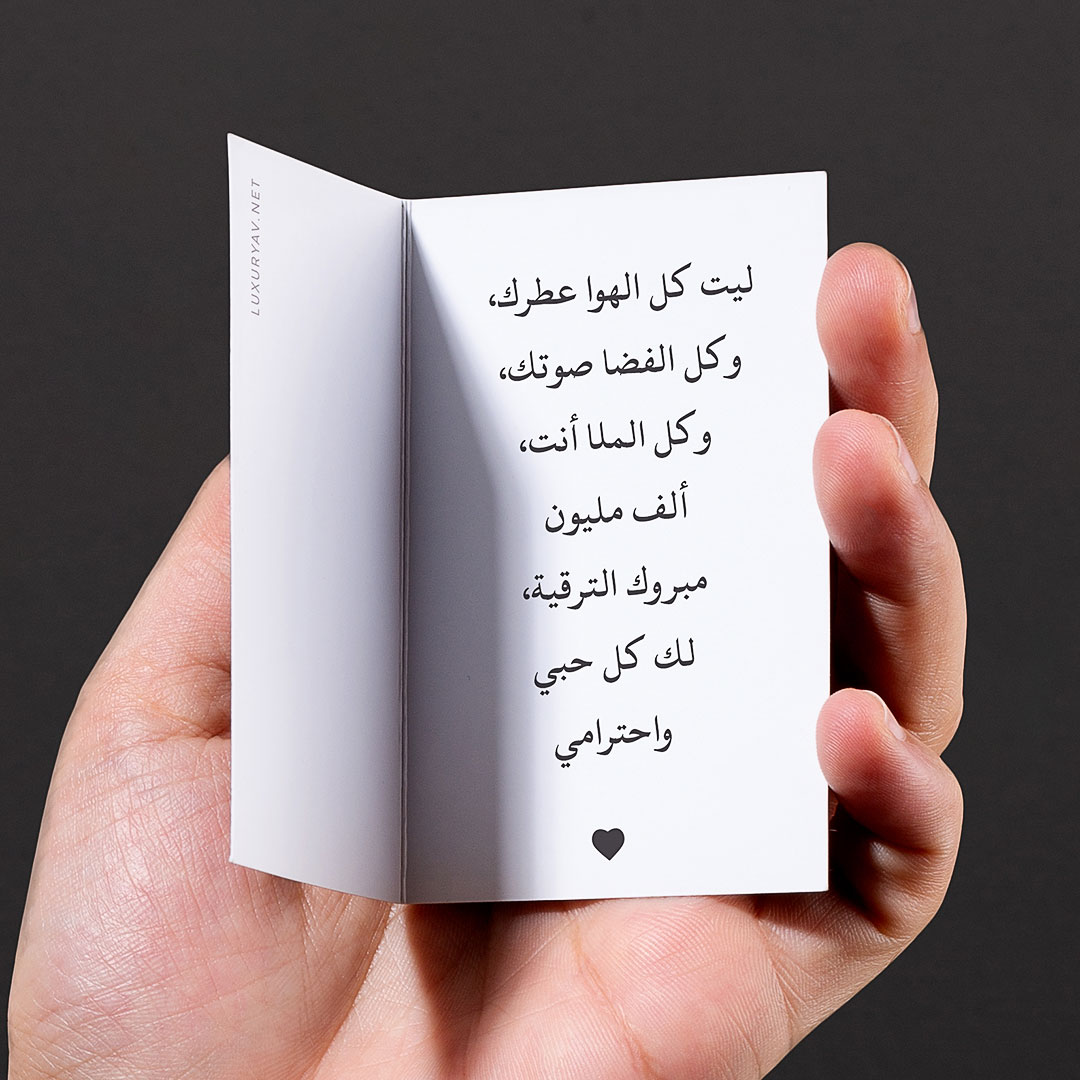 LUXURYAV.NET
ليت كل الهوا عطرك،
وكل الفضا صوتك،
وكل الملا أنت،
ألف مليون
مبروك الترقية،
لك كل حبي
واحترامي